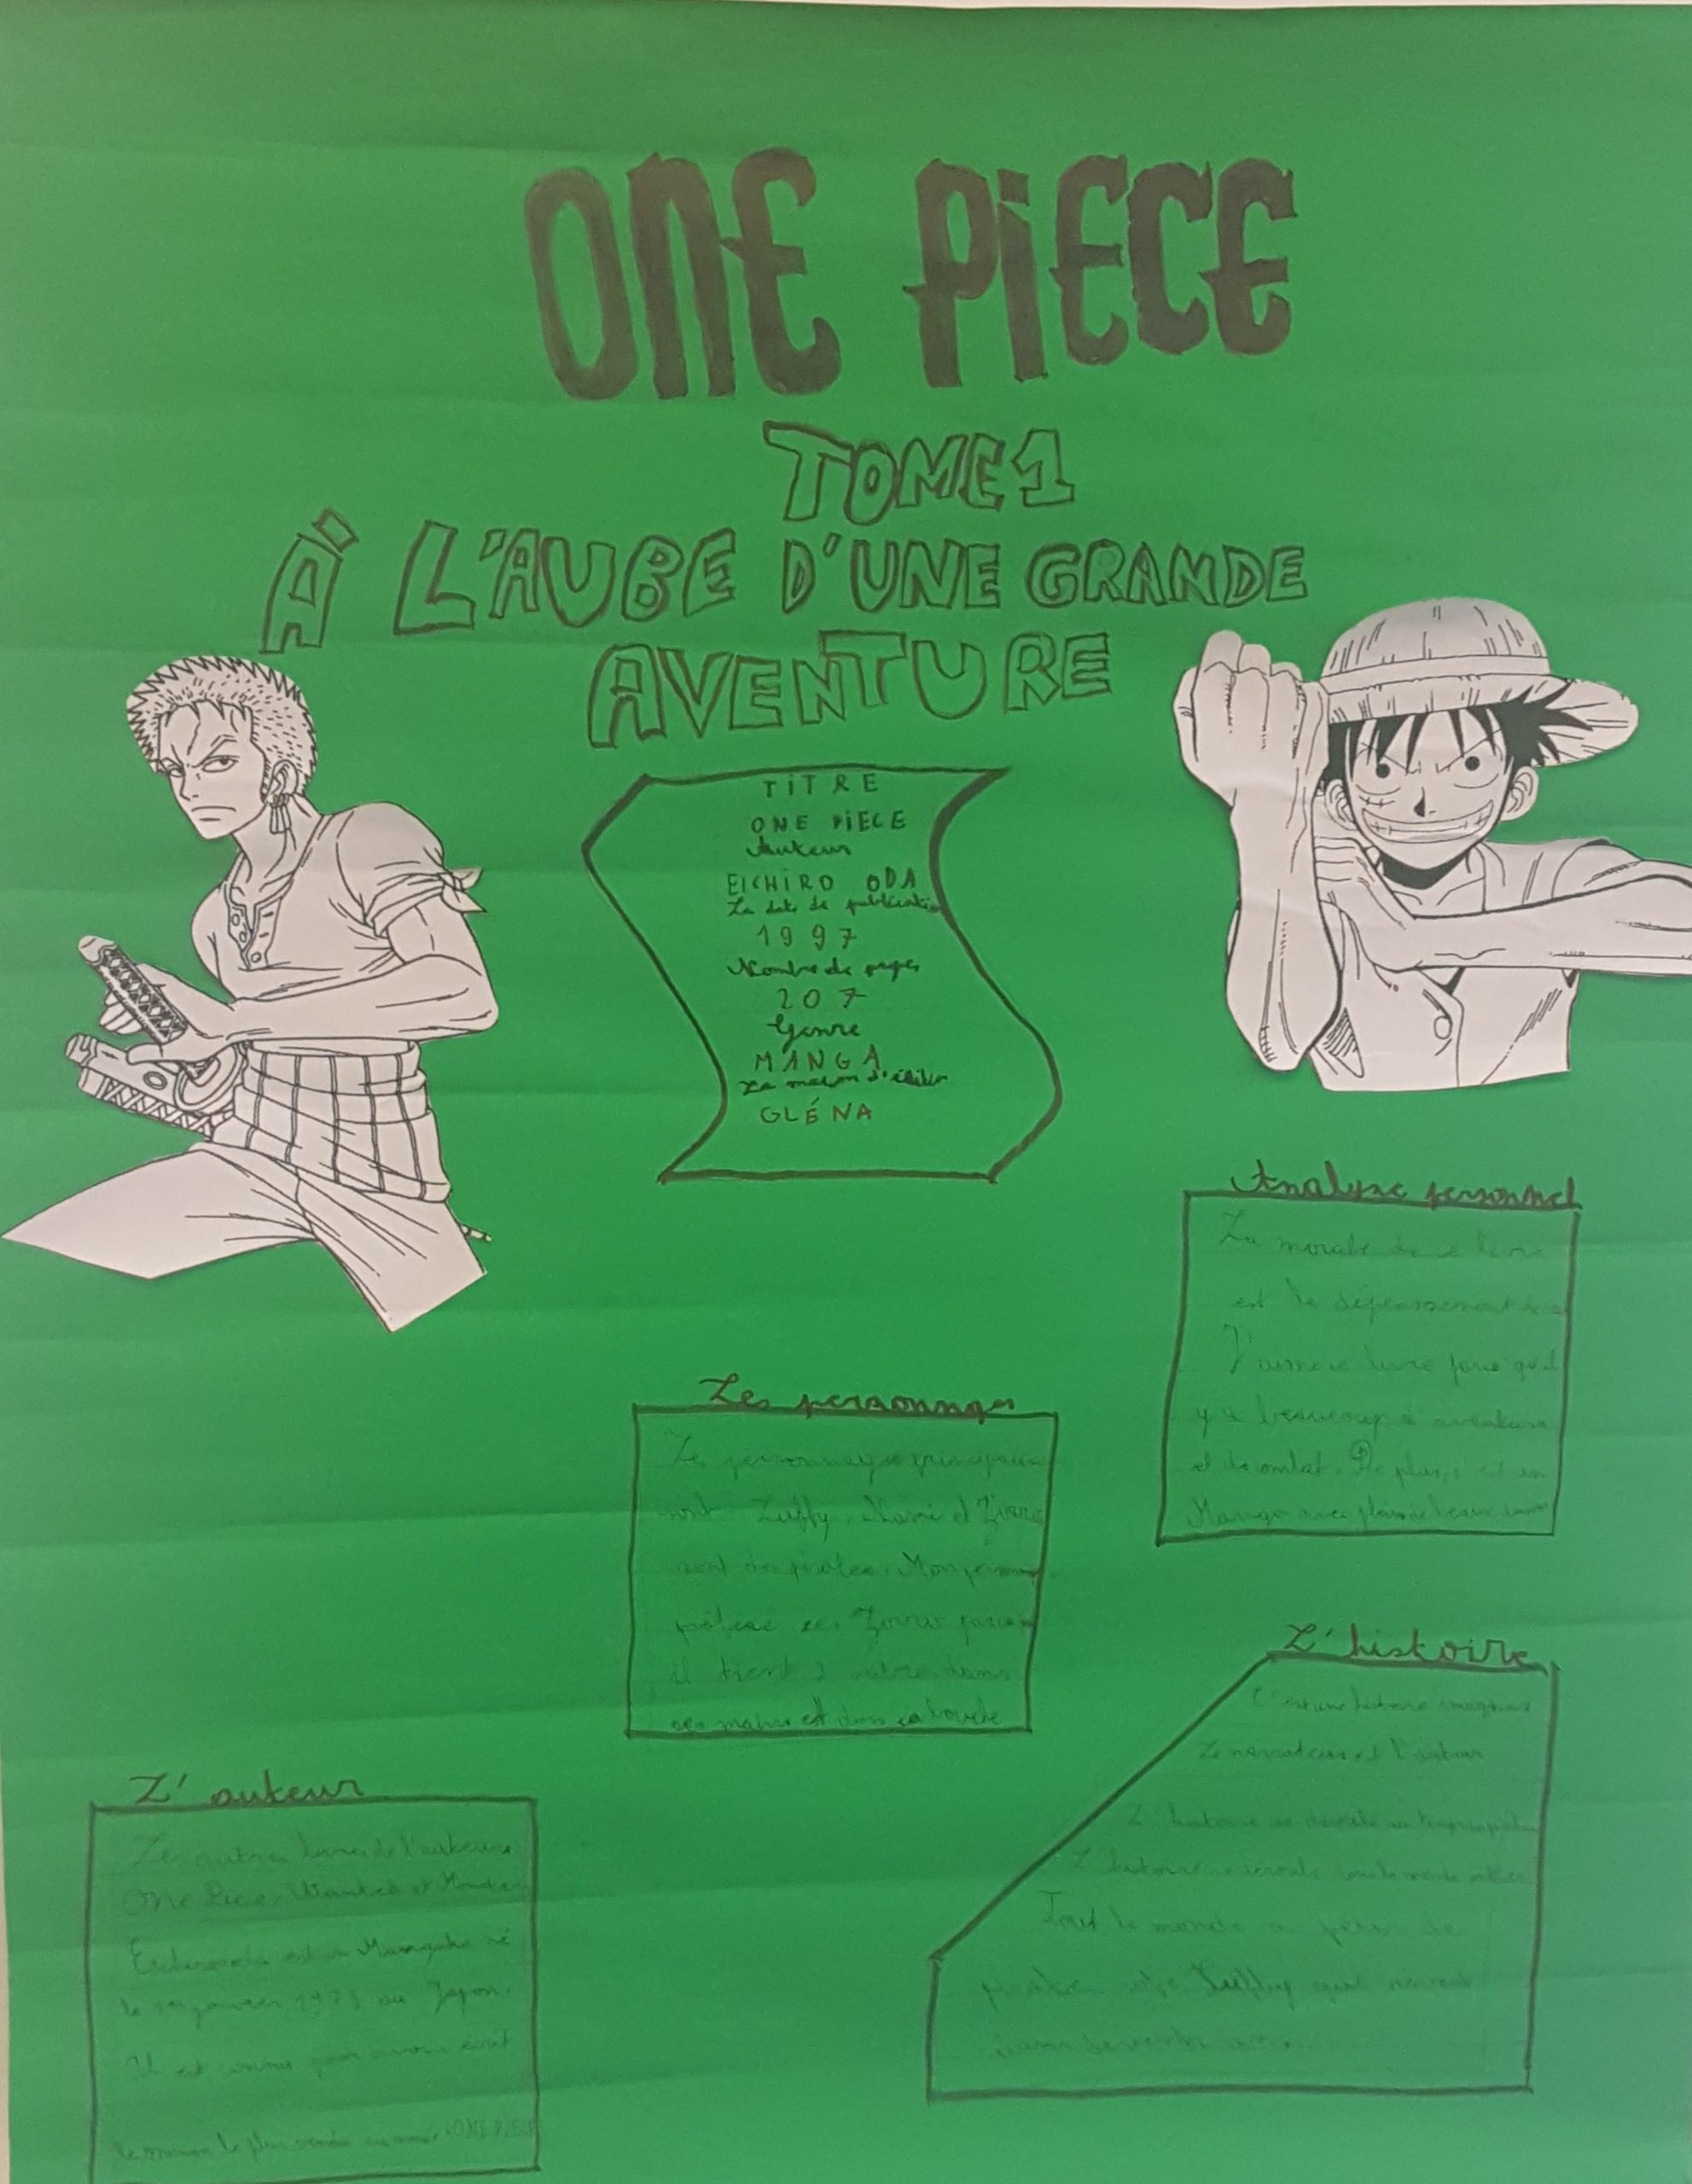 ONE PIECE
TOME 1
À L'AUBE D'UNE GRANDE
AVENTURE
TITRE
ONE PIECE
Auteur
EICHIRO ODA
La date de publication
1997
Nombre de pages
207
Genre
MANGA
La maison d'édition
GLÉNA
Analyse personnel
La morale de ce livre
est le dépassement de
J'aime ce livre parce qu'il
y a beaucoup d'aventure
et de combat. De plus, c'est un
Manga avec plein de beaux
Les personnages
Les personnages principaux
sont Luffy, Nami et Zorro
sont des pirates. Mon personnage
préféré Zorro parce
il tient 3 sabre dans
ses mains et dans sa bouche
L'histoire
C'est une histoire imaginaire
Le narrateur est l'auteur
L'histoire se déroule
L'histoire se déroule le monde
Tout le monde a peur des
pirates Luffy qui
L'auteur
Les autres livres de l'auteur
One Piece, Wanted et
est un Mangaka né
le 1er janvier 1975 au Japon.
Il est connu pour avoir écrit
le manga le plus vendu au monde ONE PIECE